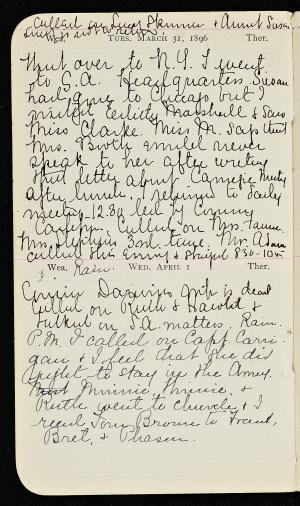 Called on Lucy Skinner & Aunt Susan
Lucy is not so
Wea. TUES. MARCH 31, 1896 Ther.
went over to N.Y. I went
to S.A. Headquarters. Susan
had gone to Chicago but I
visited Marshall & saw
Miss Clarke. Miss M. says that
Mrs. Booth would never
speak to her after writing
that letter about Carnegie Meeting
after lunch. I returned to Daily
meeting 12.30 led by
Called on Mrs.
Mrs. 3rd time. Mr. Adam
called this evening & stayed 8.30-10.45
Wea. Rain. WED. APRIL 1 Ther.
Cousin wife is dead
Called on Ruth & Harold &
talked on S.A. matters. Rain.
P.M. I called on Capt. Carri-
gan & I feel that she did
right to stay in the Army.
Minnie, Winnie, &
Ruth went to church & I
read Tom Brown to Frank,
Bret, &